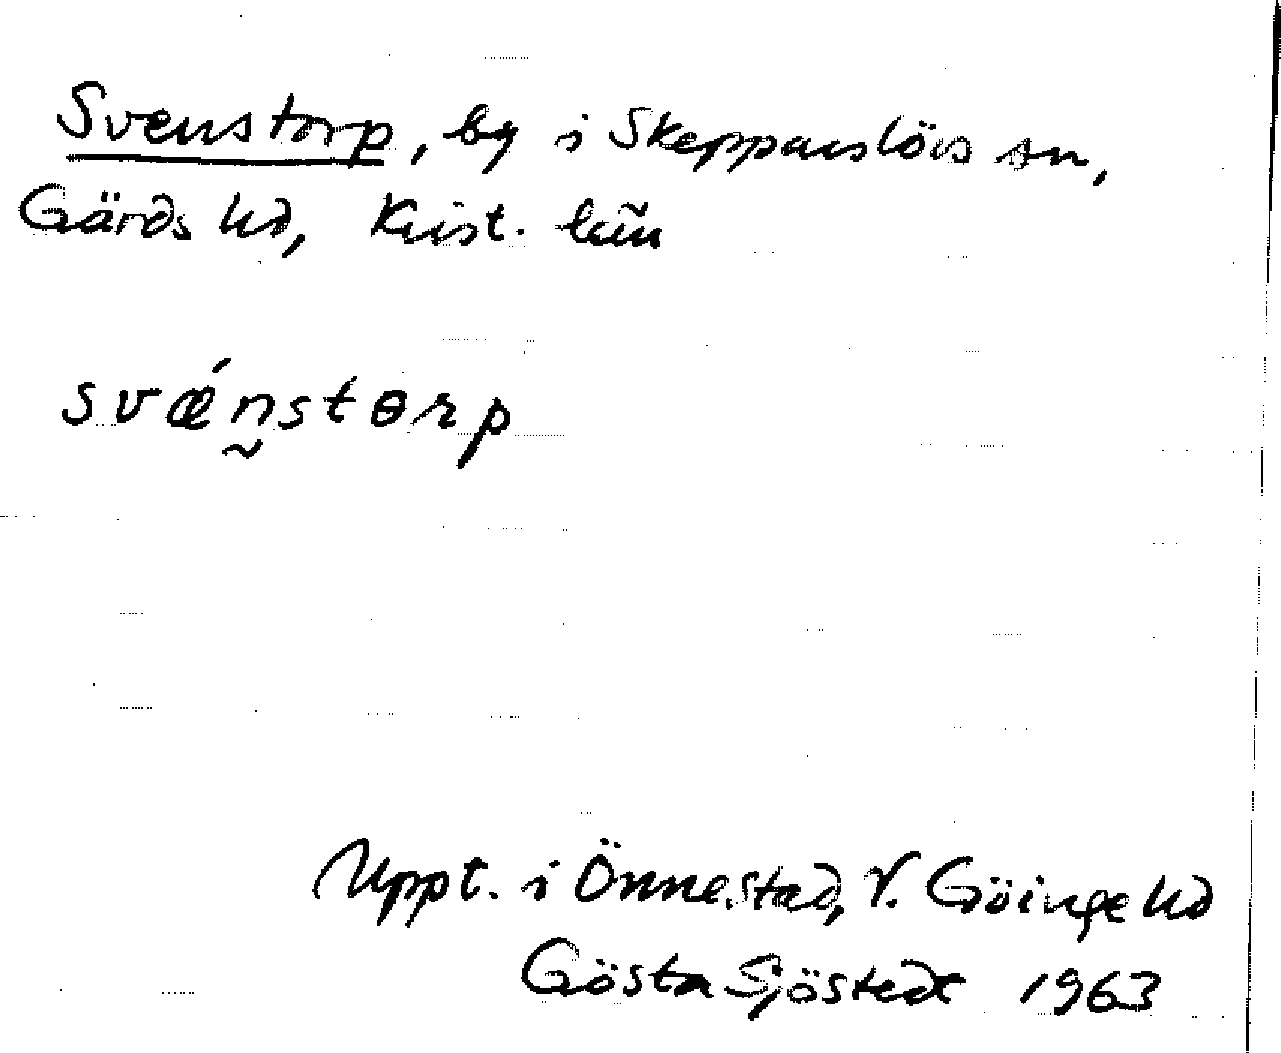 Svenstorp, by i Skepparslövs sn,
Gärds hd, Krist. län
svǽn̰stɵrp
Uppt. i Önnestad, V. Göinge hd
Gösta Sjöstedt 1963